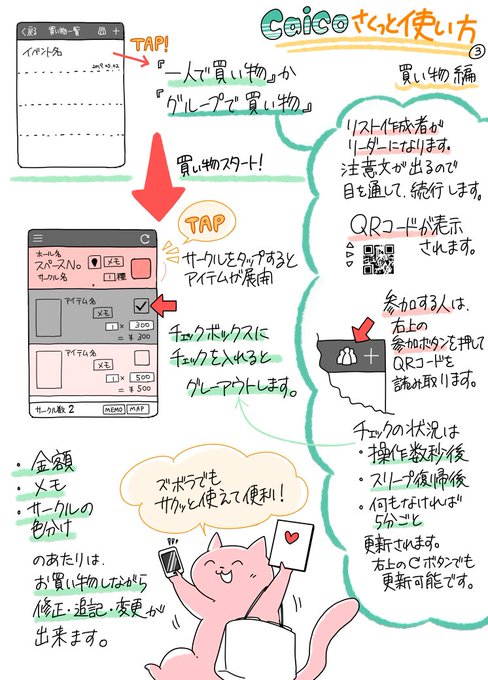 Caico さくっと使い方
③
買い物編
く戻 買い物一覧 +
イベント名
2019.05.02
TAP!
『一人で買い物』か
『グループで買い物』
買い物スタート!
TAP
サークルをタップすると
アイテムが展開
ホール名
スペースNo.
メモ
サークル名
1 種
アイテム名
メモ
1 × 300
= ¥ 300
アイテム名
メモ
1 × 500
= ¥ 500
サークル数 2
MEMO
MAP
チェックボックスに
チェックを入れると
グレーアウトします。
リスト作成者が
リーダーになります。
注意文が出るので
目を通して、続行します。
QRコードが表示
されます。
参加する人は、
右上の
参加ボタンを押して
QRコードを
読み取ります。
チェックの状況は
・操作数秒後
・スリープ復帰後
・何もなければ
5分ごと
更新されます。
右上のCボタンでも
更新可能です。
・金額
・メモ
・サークルの
色分け
のあたりは、
お買い物しながら
修正・追記・変更が
出来ます。
ズボラでも
サクッと使えて便利!